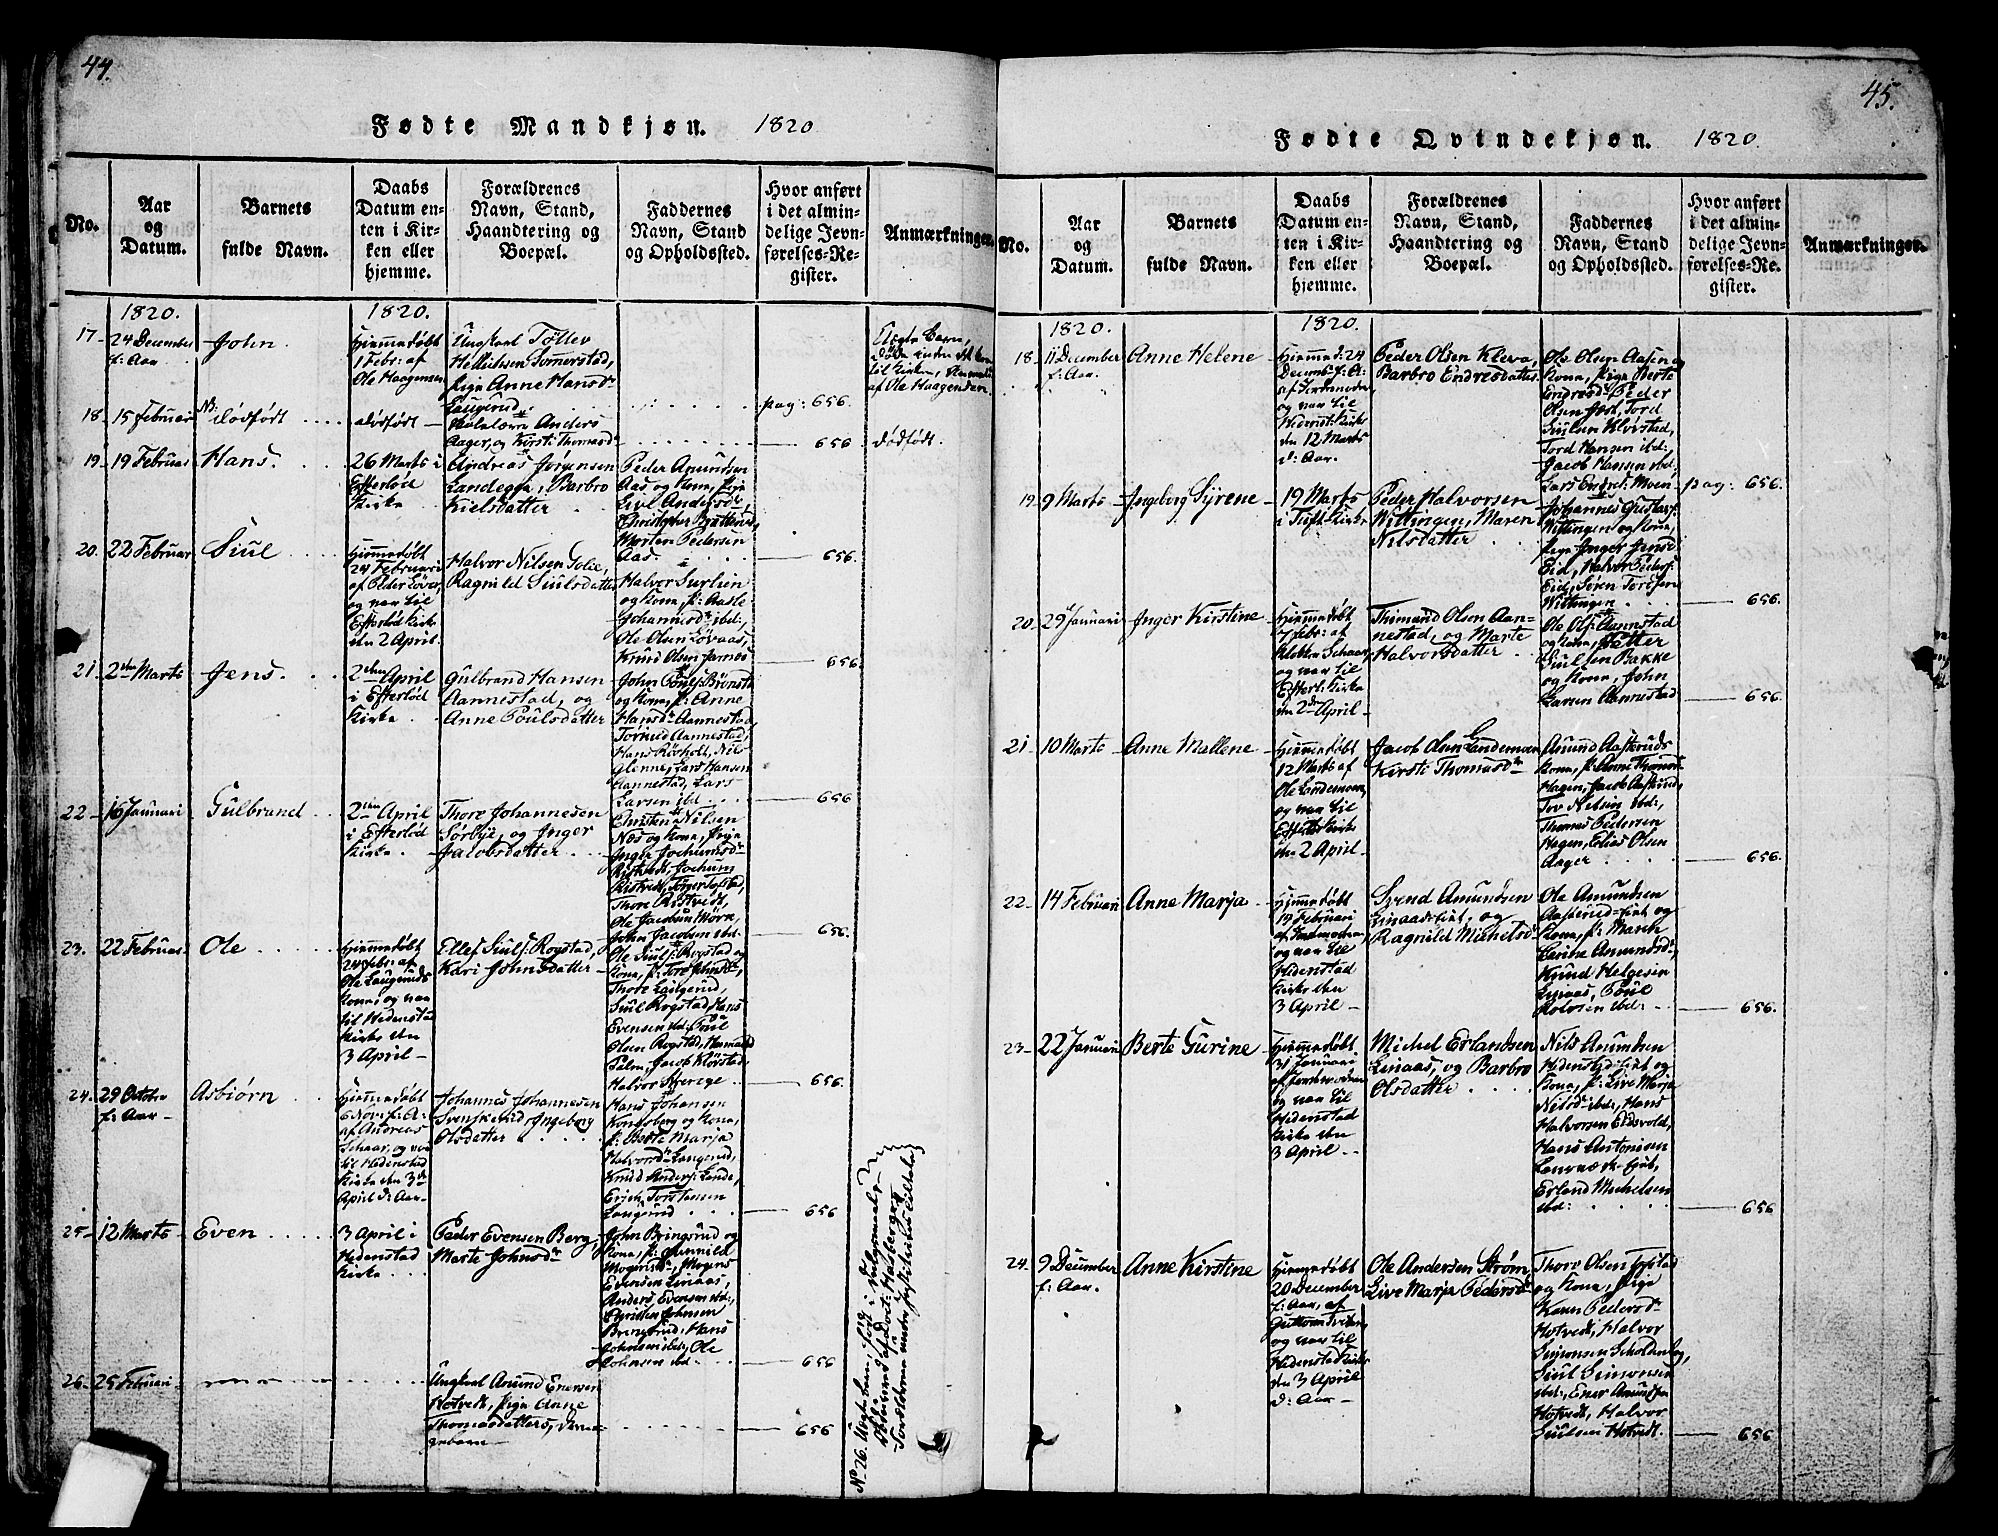 44.
Fødte Mandkjøn. 1820
No.
Aar
og
Datum.
Barnets
fulde Navn.
Daabs
Datum en-
ten i Kir-
ken eller
hjemme.
Forældrenes
Navn, Stand,
Haandtering og
Boepæl.
Faddernes
Navn, Stand
og Opholdssted.
Hvor anført
i det almin-
delige Jevn-
førelses-Re-
gister.
Anmærkninger.
1820.
1820.
17 -
24 December
f: Aar
John
Hjemmedøbt
1 Febr: af
Ole Haagensen
Ungkarl Töllev
Hellichsen Somerstad,
pige Anne Hansd
Laugerud
pag: 656.
Uægte Barn,
til Kirken,
af Ole Haagensen
18
15 Februar
Dödfödt
dödfödt
Anders
Aager, og Kirsti Thomasd
656
dödfödt.
19 -
19 Februar
Hans.
26 Marts i
Efterlød
Kirke
Andreas Jørgensen
Landegge, Barbro
Kielsdatter
Peder Amundsen
Aas og Kona, pige
Live Andersd,
Christopher Bratterud
Morten Pedersen
Aas.
656.
20.
22 Februar
Siul
Hjemmedøbt
24 Februari
af Peder Löver,
og var til
Efterlød Kirke
den 2 April.
Halvor Nilsen Golie,
Ragnild Siulsdatter
Halvor Surlien
og Kona, p: Aasle
Johannesd ibd:
Ole Olsen Lövaas,
Knud Olsen Jarnes
656.
21
2den Marts
Jens.
2den April
i Efterlød
Kirke
Gulbrand Hansen
Aannestad, og
Anne Poulsdatter
John Pouls: Brönsta
og Kona, p: Anne
Hansd Aannestad,
Tormud Aannestad,
Hans Röeholt, Nils
Glenne, Lars Hansen
Aannestad, Lars
Larsen ibd
656
22
16 Januari
Gulbrand
2den April
i Efterlød
Kirke
Thore Johannesen
Sørbye, og Inger
Jacobsdatter
Christen Nilsen
Næs og Kona, Pige
Inger Jochumsd
Ristvedt, Jochum
Ristvedt,
Thore Ristvedt,
Ole Jacobsen Mörn,
John Jacobsen ibd.
656.
23.
22 Februar
Ole
Hjemmedøbt
24 febr: af
Ole Laugeruds
Kona; og var
til Hedenstad
Kirke den
3 April
Ellef Siuls: Rogstad,
Kari Johnsdatter
Ole Siuls: Rogstad og
Kona, p: Tore Johnsd,
Thore Laugerud,
Siul Rogstad, Hans
Evensen ibd. Poul
Olsen Rogstad,
Palm, Jacob Klöstad
Halvor Averege
656.
24.
29 Octobr
f: Aar
Asbiörn
Hjemmedøbt
6 Nov: f: A:
af Andreas
Schaar, og var
til Hedenstad
Kirke den 3d
April d: Aar
Johannes Johannesen
Svenskerud Ingeborg
Olsdatter
Hans Johansen
Kongsberg og Kona,
p: Berte Marja
Halvorsd Laugerud,
Knud Anders: Lande,
Erich Torstensen
Laugerud
656
25
12 Marts
Even
3 April i
Hedenstad
Kirke
Peder Evensen Berg,
Marte Johnsd
John Bringsrud og
Kona, p: Gunnild
Mogensd, Mogens
Evensen Linaas,
Anders Evensen ibd:,
Christen Johnsen
Bringsrud, Hans
Johnsen ibd., Ole
Johnsen ibd.
656
26
25 Februari
Ungkarl Amund Enersen
Hotvedt, pige Anne
Thomasdatters,
656
No 26. Uægte barn, född i
45.
Fødte Qvindekjøn. 1820.
No.
Aar
og
Datum.
Barnets
fulde Navn.
Daabs
Datum en-
ten i Kir-
ken eller
hjemme.
Forældrenes
Navn, Stand,
Haandtering og
Boepæl.
Faddernes
Navn, Stand
og Opholdssted.
Hvor anført
i det almin-
delige Jevn-
førelses-Re-
gister.
Anmærkninger.
1820.
1820.
18.
11 December
f: Aar.
Anne Helene
Hjemmed: 24
Decemb: f: A:
af Jordemoder
og var til
Hedenst: Kirke
den 12 Marts
d: Aar.
Peder Olsen Kleva,
Barbro Endresdatter
Ole Olsen Aasen og
Kona, pige Berte
Endresd Peder
Olsen Foss, Tord
Siulsen Klovstad,
Tord Hansen ibd:
Jacob Hansen ibd,
Lars Endres: Moen
pag: 656.
19.
9 Marts
Ingeborg Syrene
19 Marts
i Tuft Kirke
Peder Halvorsen
Wittingen, Maren
Nilsdatter
Johannes Gustavs:
Wittingen og Kona,
Pige Inger Jensd
Eid, Halvor Peders:
Eid, Sören Torersen
Wittingen
656.
20.
29 Januari
Inger Kirstine
Hjemmedøbt
7 febr: af
Schaar
og var til
Efterl: Kirke
den 2d April
Thimund Olsen Aan-
nestad, og Marte
Halvorsdatter
Ole Ols: Aannestad
og Kona, Petter
Siulsen Bakke
og Kona, John
Larsen Aannestad
656.
21
10 Marts
Anne Mallene
Hjemmedøbt
12 Marts af
Ole Landemoen,
og var til
Efterl: Kirke
den 2 April
Jacob Olsen Landemoen
Kirsti Thomasd
Amund Aasteruds
Kona, p: Anne Thomasd
Hagen, Jacob Aasterud,
Tov Nilsen ibd:,
Thomas Pedersen
Hagen, Elias Olsen
Aager
656.
22
14 Februari
Anne Marja
Hjemmedøbt
19 Februari
af Jordemoder,
og var til
Hedenstad
Kirke den
3 April
Svend Amundsen
Linaas-Eiet, og
Ragnild Michelsd
Ole Amundsen
Aasterud-Eiet og
Kona, p: Maren
Lenke Amundsd,
Knud Helgesen
Linaas, Poul
Rolvsen ibd:
656.
23
22 Januari
Berte Gurine
Hjemmedøbt
31 Januari
af Jordemoderen
og var til
Hedenstad
Kirke den
3 April
Michel Erlandsen
Linaas, og Barbro
Olsdatter
Nils Amundsen
Hedenstad-Eiet og
Kona, p: Live Marja
Nilsd ibd:, Hans
Halvorsen Eidsvold,
Hans Antonisen
Laurvæk-Ejet,
Erland Michelsen
ibd:
656
24
9 December
f: Aar.
Anne Kirstine
Hjemmedøbt
20 December
f: Aar, af
Guttorm
og var til
Hedenstad Kirke
den 3 April
d: Aar
Ole Andersen Ström,
Live Marja Pedersd
Thorv Olsen
og Kona, pige
Karen Pedersd
Hotvedt, Halvor
Simonsen Scholdenborg,
Siul Simonsen
ibd:, Ener Amundsen
Hotvedt, Halvor
Siulsen Hotvedt.
656